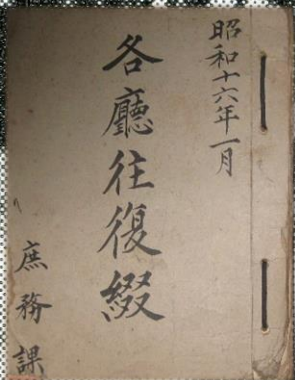 昭和十六年一月
各廳往復綴
庶務課